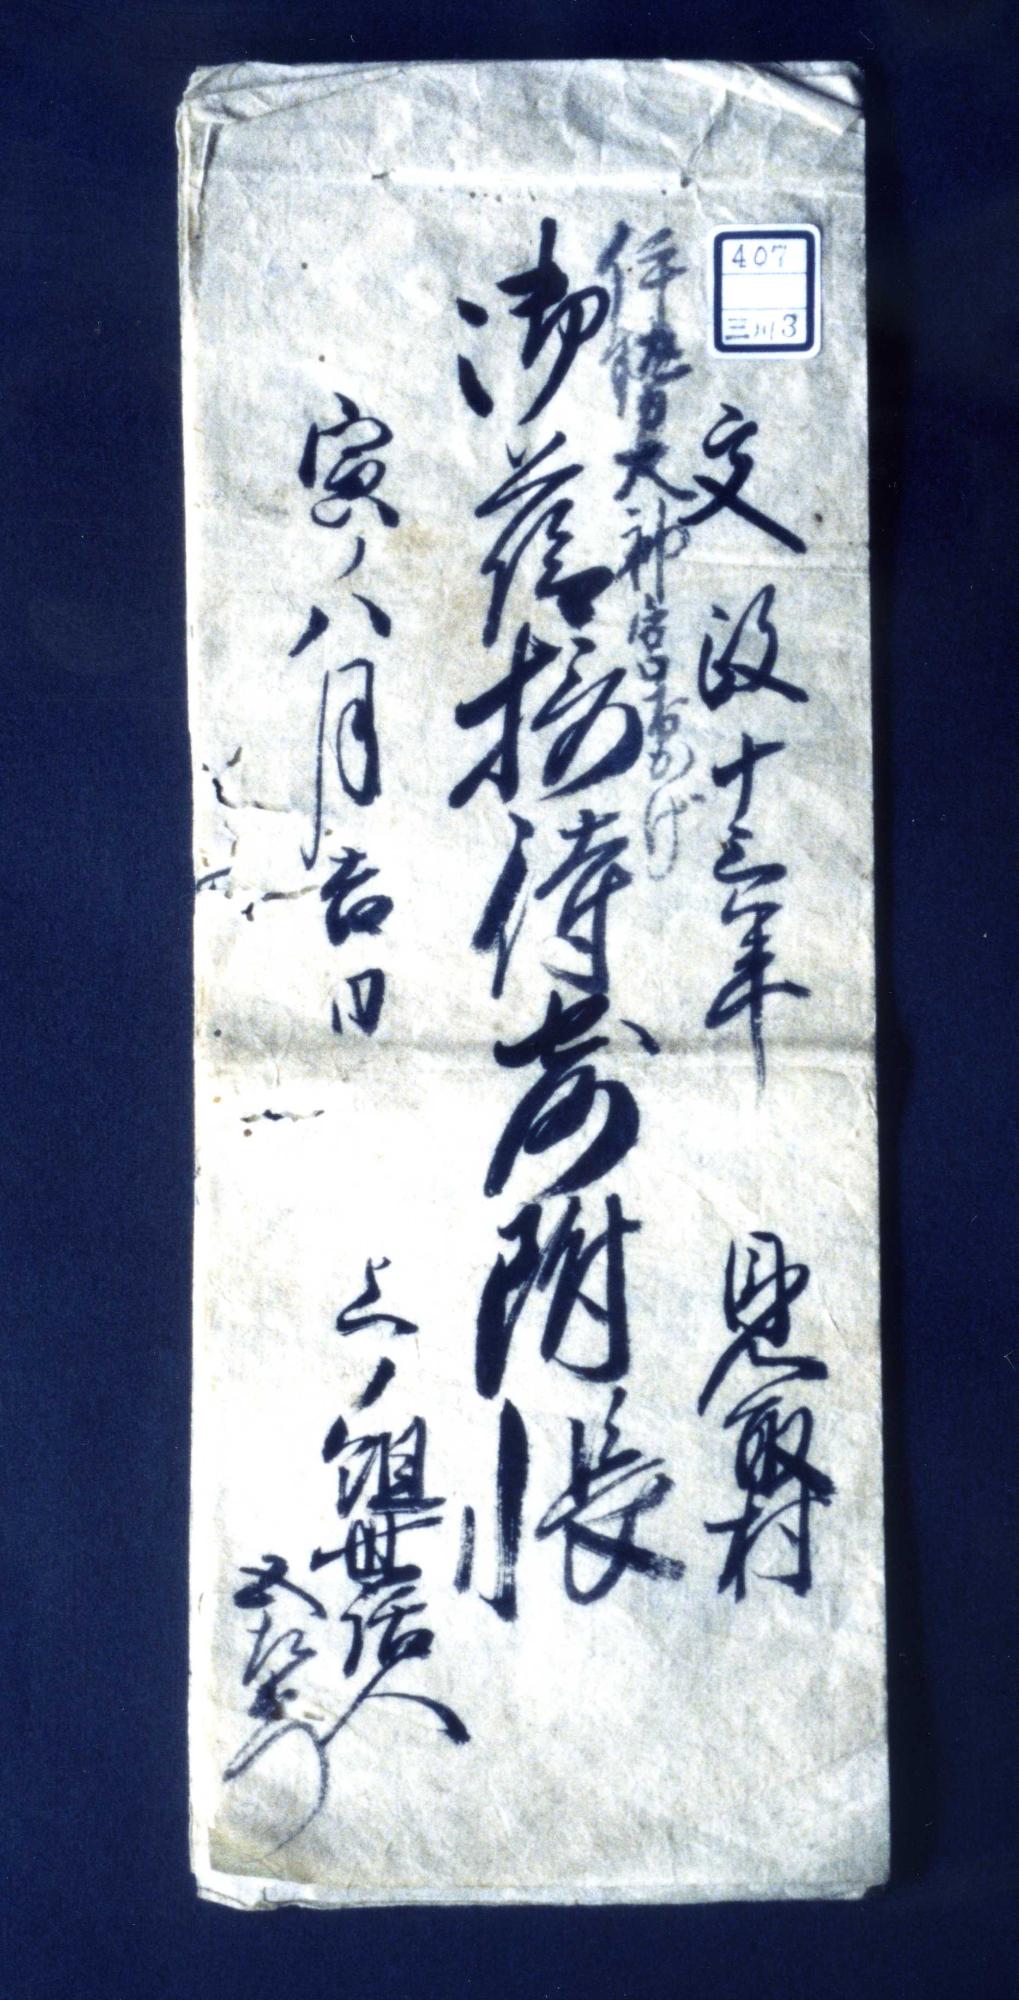 407
三川3
文政十三年 見取村
伊勢大神宮おかげ
御蔭接待寄附帳
寅ノ八月吉日 上ノ組世話人